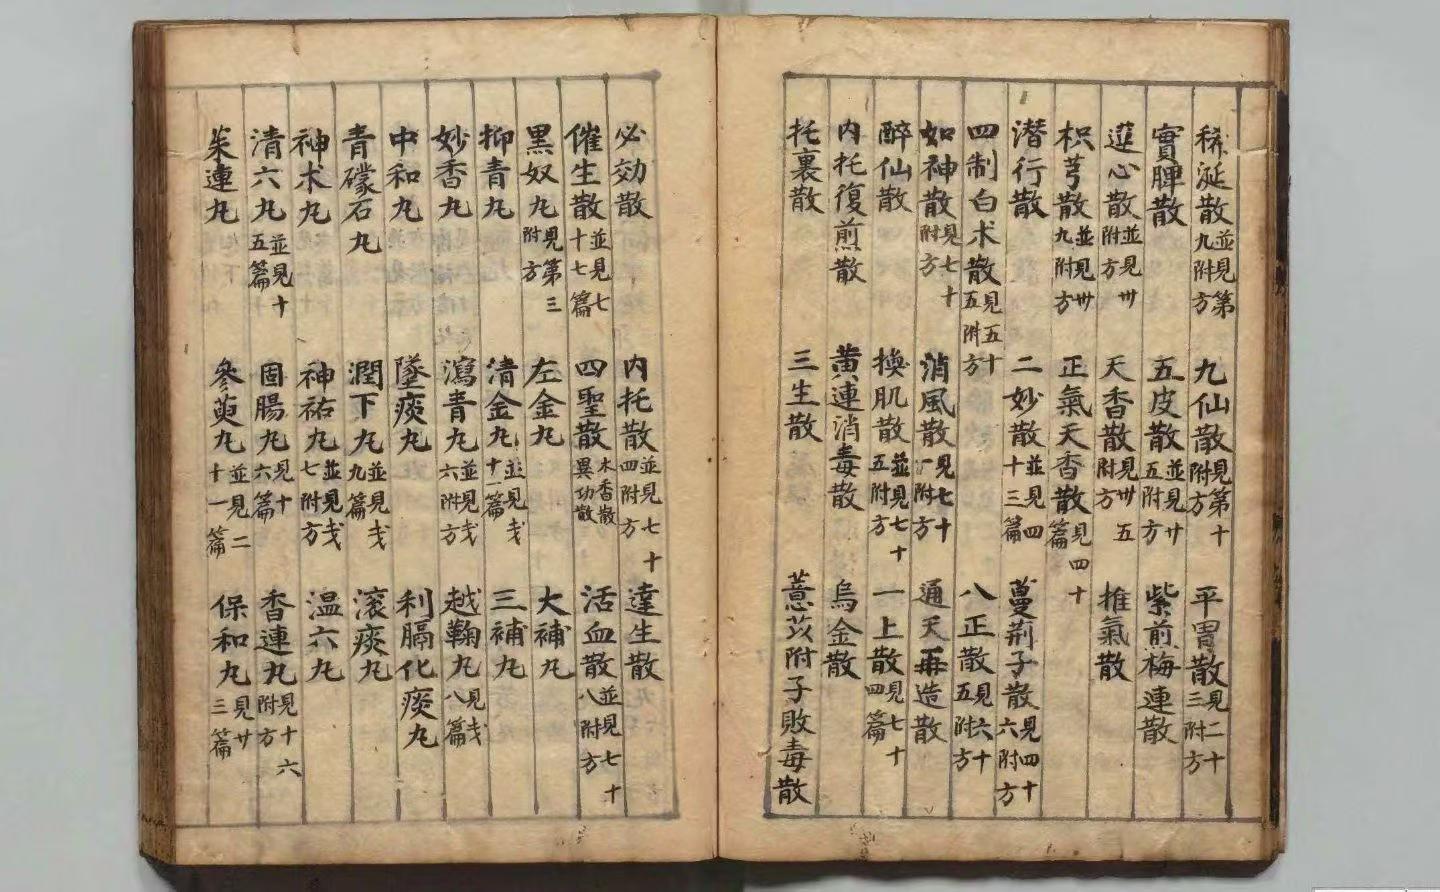 稀涎散並見第九附方 九仙散見第十附方 平胃散見二十三附方
實脾散 五皮散並見廿五附方 紫煎梅連散
蓮心散並見卅附方 天香散見卅五附方 推氣散
枳芎散並見卅九附方 正氣天香散見四十篇
潜行散 二妙散並見四十三篇 蔓荊子散見四十六附方
四制白术散見五十五附方 八正散見六十五附方
如神散見七十附方 消風散見七十一附方 通天再造散
醉仙散 換肌散並見七十五附方 一上散見七十四篇
内托復煎散 黄連消毒散 烏金散
托裏散 三生散 薏苡附子敗毒散
必効散 内托散並見七十四附方 達生散
催生散並見七十七篇 四聖散木香散異功散 活血散並見七十八附方
黑奴丸見第三附方 左金丸 大補丸
抑青丸 清金丸並見戔十一篇 三補丸
妙香丸 瀉青丸並見戔六附方 越鞠丸見戔八篇
中和丸 墜痰丸 利膈化痰丸
青礞石丸 潤下丸並見戔九篇 滚痰丸
神术丸 神祐丸並見戔七附方 温六丸
清六丸並見十五篇 固腸丸見十六篇 香連丸見十六附方
茱連丸 參萸丸並見二十一篇 保和丸見廿三篇